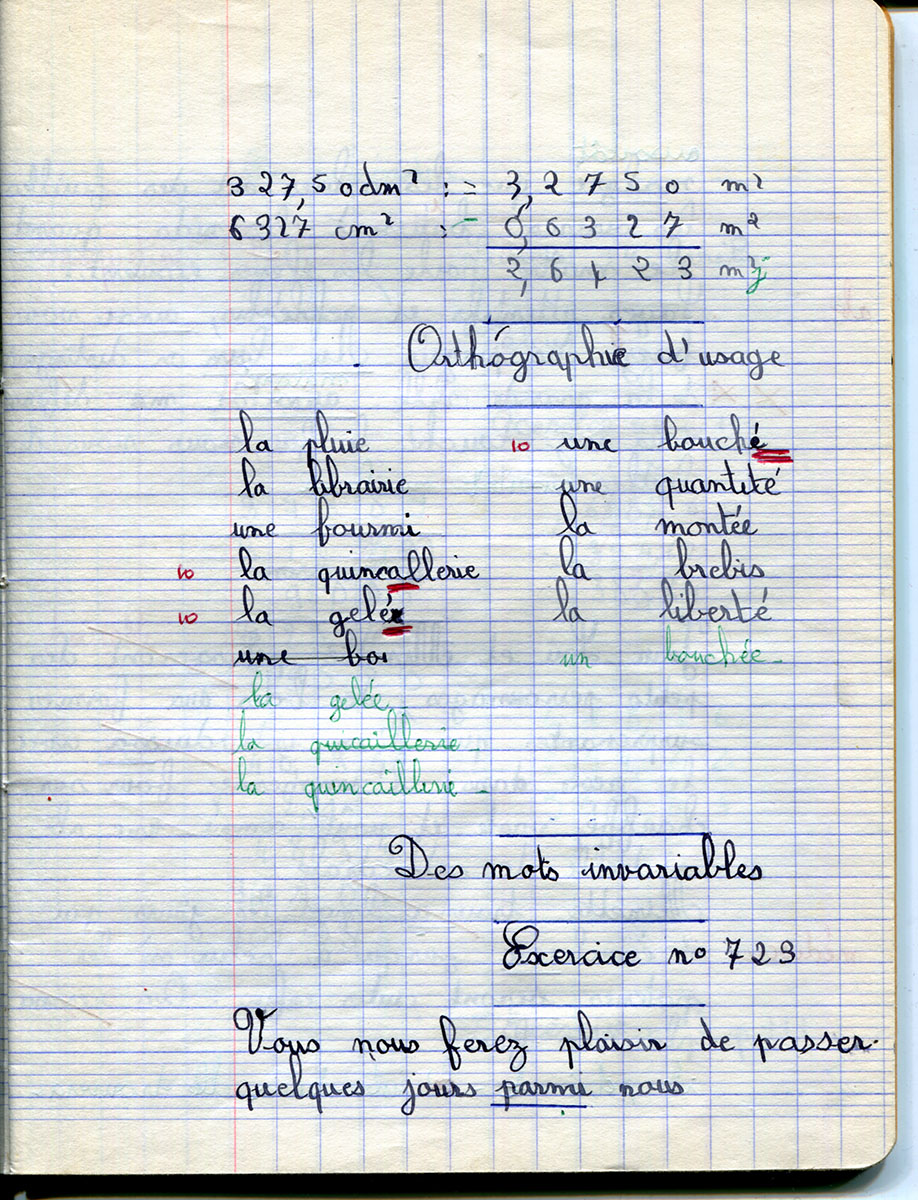 327,50dm² := 3,2750 m²
6327 cm² : - 0,6327 m²
2,6423 m²
Orthographie d'usage
la pluie 10 une bouché
la librairie une quantité
une fourmi la montée
10 la quincallerie la brebis
10 la gelé la liberté
une boi un bouchée
la gelée
la quicaillerie
la quincaillerie
Des mots invariables
Exercice n° 723
Vous nous ferez plaisir de passer
quelques jours parmi nous